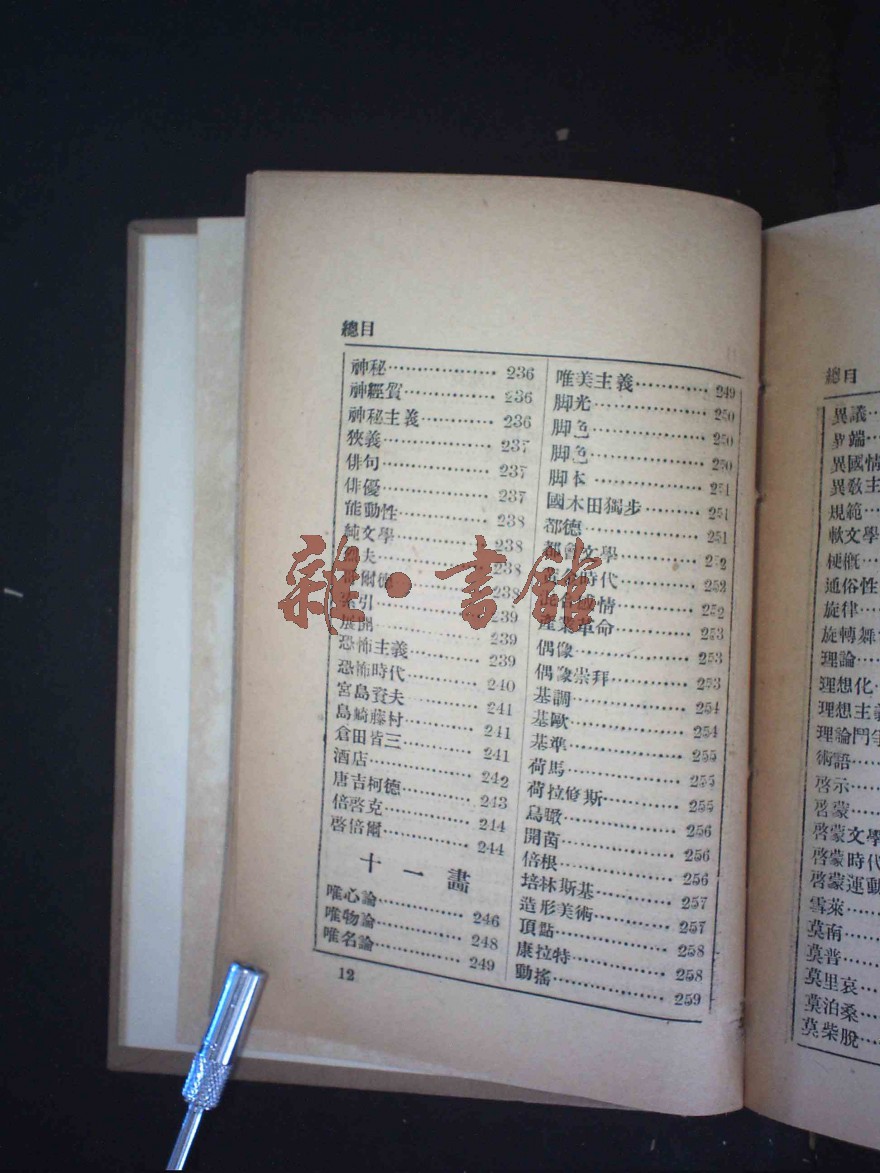 總目
神秘 236
神經質 236
神秘主義 236
狹義 237
俳句 237
俳優 237
能動性 238
純文學 238
夫 238
爾 238
索引 239
展開 239
恐怖主義 239
恐怖時代 240
宮島資夫 241
島崎藤村 241
倉田皆三 241
酒店 242
唐吉柯德 243
倍啓克 244
啓倍爾 244
十一畫
唯心論 246
唯物論 248
唯名論 249
12
唯美主義 249
脚光 250
脚色 250
脚色 250
脚本 251
國木田獨步 251
都德 251
都會文學 252
黃金時代 253
混合感情 252
產業革命 253
偶像 253
偶像崇拜 253
基調 254
基歐 254
基準 255
荷馬 255
荷拉修斯 255
鳥瞰 256
開茵 256
倍根 256
培林斯基 257
造形美術 257
頂點 258
康拉特 258
動搖 259
雜·書館
總目
異議
異端
異國情
異教主
規範
軟文學
梗概
通俗性
旋律
旋轉舞
理論
理想化
理想主義
理論鬥爭
術語
啓示
啓蒙
啓蒙文學
啓蒙時代
啓蒙運動
雪萊
莫南
莫普
莫里哀
莫泊桑
莫柴脫